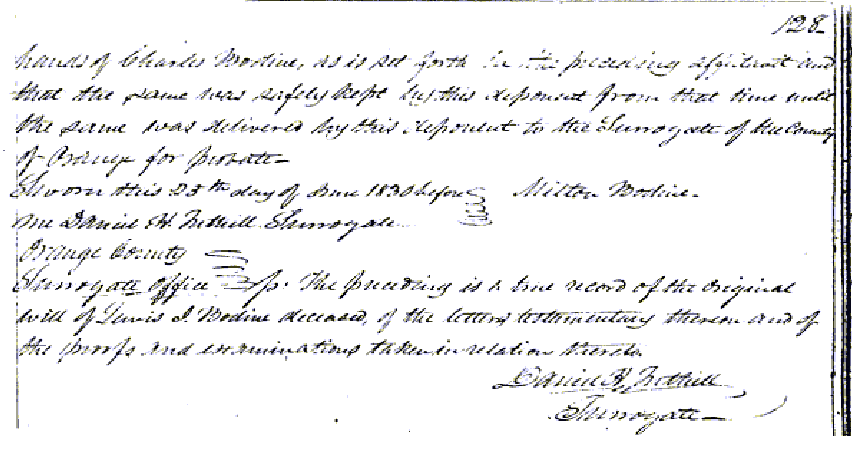 128
hands of Charles Bodine, as is set forth in the preceding affidavit and
that the same was safely kept by this deponent from that time until
the same was delivered by this deponent to the Surrogate of the County
of Orange for probate—
Sworn this 25th day of June 1830 before Milton Bodine.
me Daniel H. Tuthill Surrogate
Orange County
Surrogate Office ss. The preceding is a true record of the original
will of Lewis I. Bodine deceased, of the letters testamentary thereon and of
the proofs and examinations taken in relation thereto
Daniel H. Tuthill
Surrogate—